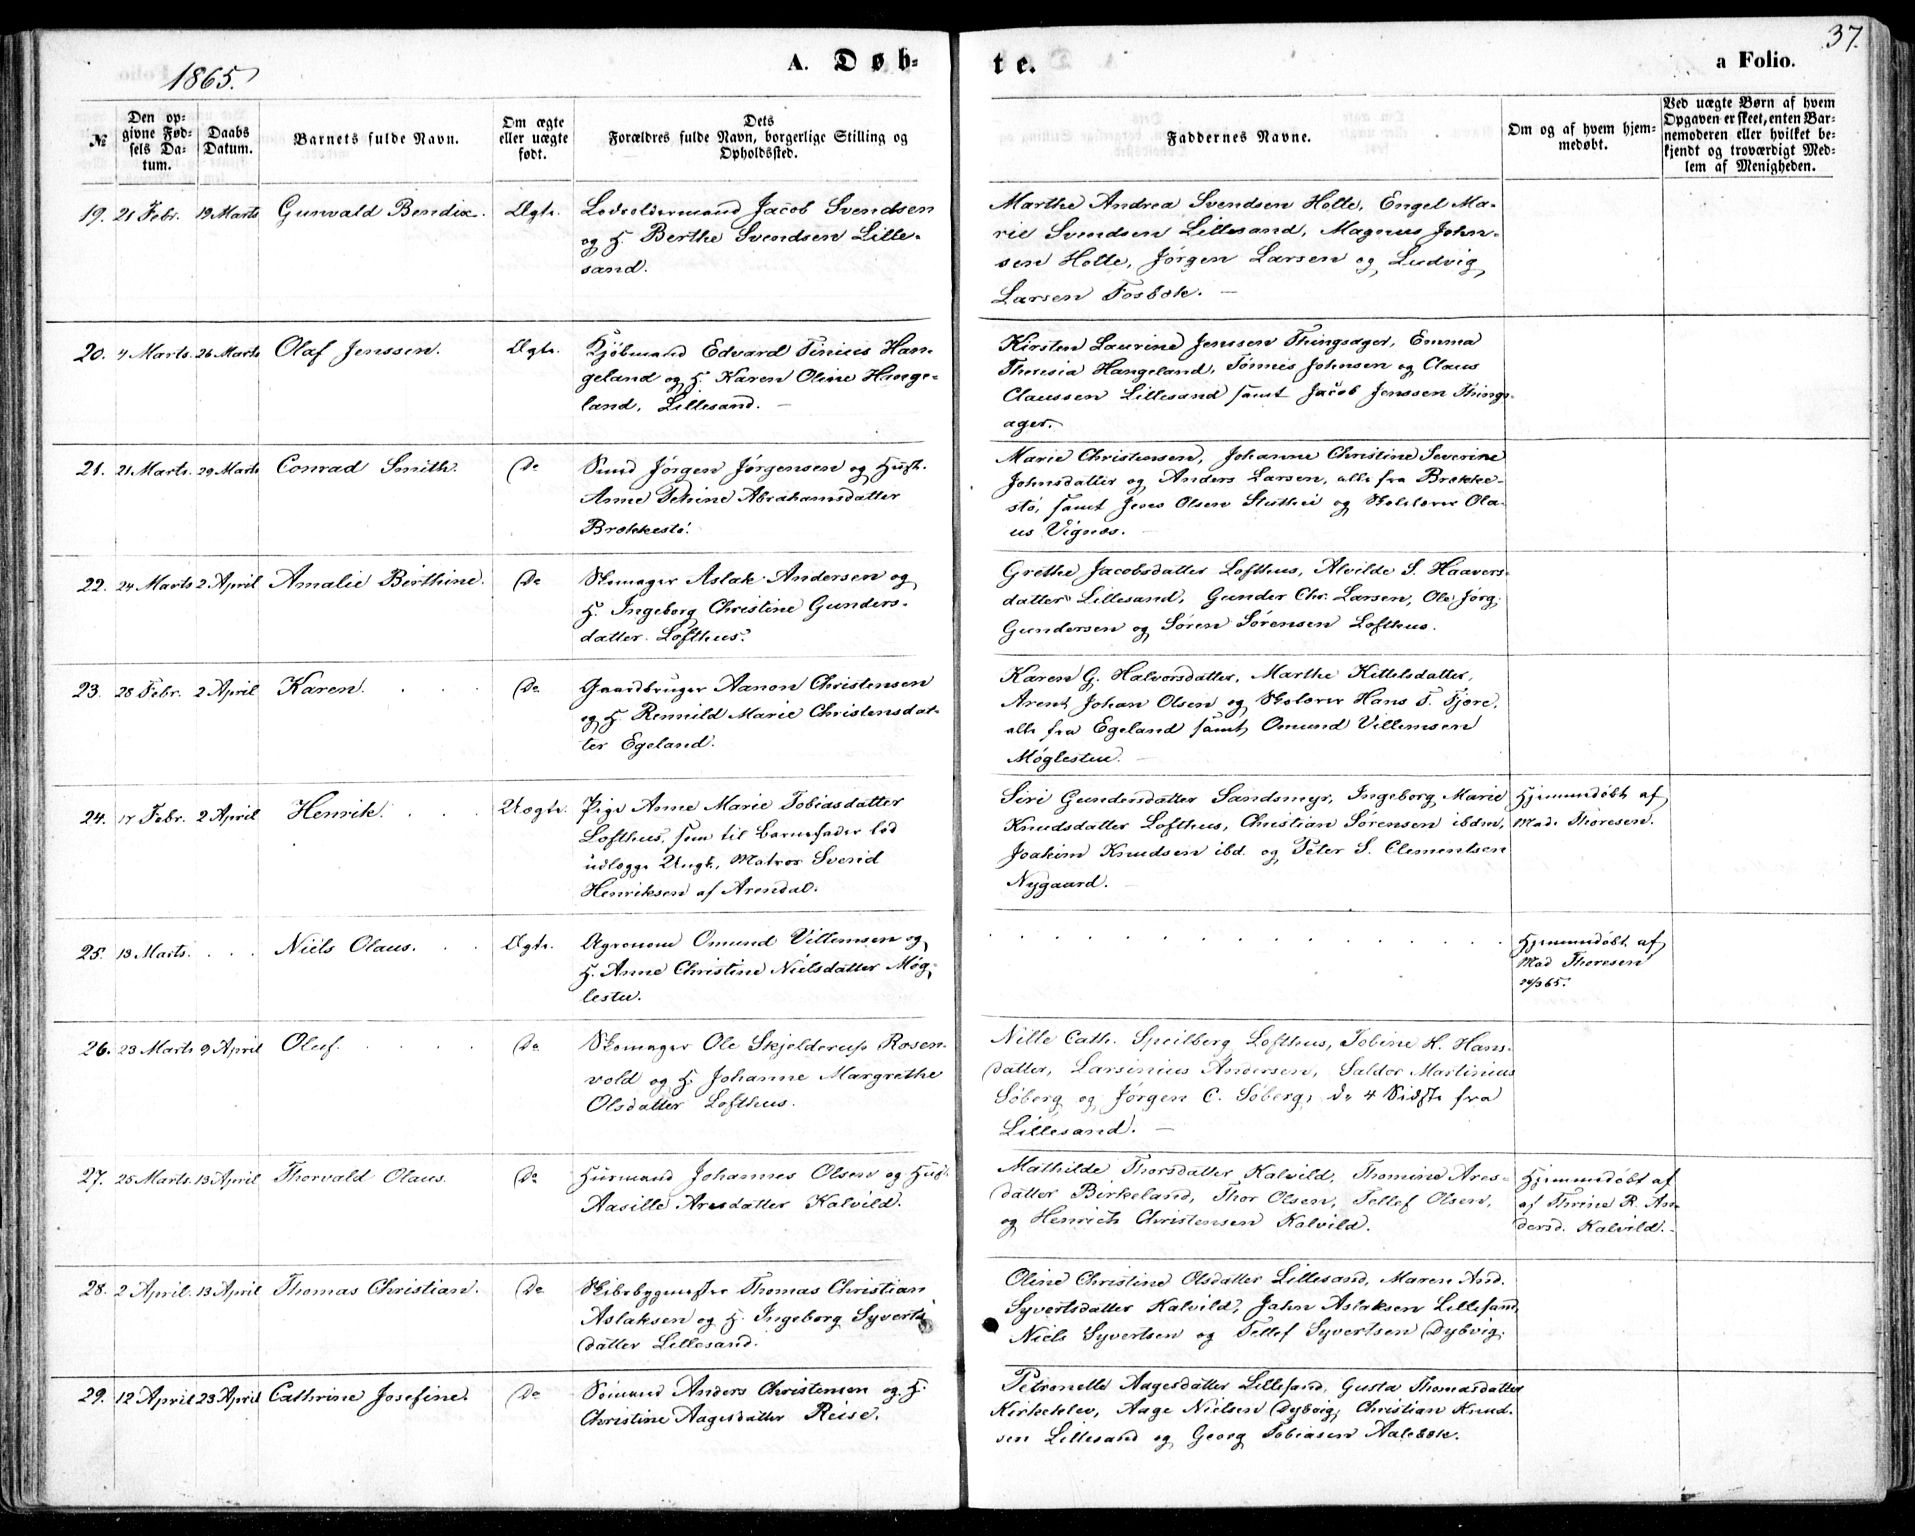 1865.
A. Døb-
te.
37.
a Folio.
№
Den op-
givne Fød-
sels Da-
tum.
Daabs
Datum.
Barnets fulde Navn.
Om ægte
eller uægte
født.
Dets
Forældres fulde Navn, borgerlige Stilling og
Opholdssted.
Faddernes Navne.
Om og af hvem hjem-
medøbt.
Ved uægte Børn af hvem
Opgaven er skeet, enten Bar-
nemoderen eller hvilket be-
kjendt og troværdigt Med-
lem af Menigheden.
19. 21 Febr. 19 Marts Gunvald Bendix. Ægte. Lodsoldermand Jacob Svendsen
og H. Berthe Svendsen Lille-
sand.
Marthe Andrea Svendsen Holte, Engel Ma-
rie Svendsen Lillesand, Magnus John-
sen Holte, Jørgen Larsen og Ludvig
Larsen Fosbæk. —
20. 4 Marts. 26 Marts Olaf Jenssen. Ægte. Kjøbmand Edvard Tinius Han-
geland og H. Karen Oline Hange-
land, Lillesand. —
Kirsten Laurine Jenssen Thingsager, Emma
Theresia Hangeland, Tønnes Johnsen og Claus
Claussen Lillesand samt Jacob Jenssen Things-
ager.
21. 21 Marts. 29 Marts Conrad Smith. Do Smed Jørgen Jørgensen og Hust.
Anne Tehine Abrahamsdatter
Brækkestø.
Marie Christensen, Johanne Christine Severine
Johnsdatter og Anders Larsen, alle fra Brække-
stø, samt Jens Olsen og Skolelærer Ola-
us Vignæs.
22. 24 Marts 2 April Amalie Birthine. Do Skomager Aslak Andersen og
H. Ingeborg Christine Gunders-
datter. Lofthus.
Grethe Jacobsdatter Lofthus, Alvilde S. Haavors-
datter Lillesand, Gunder Chr. Larsen, Ole Jørg.
Gundersen og Søren Sørensen Lofthus.
23. 28 Febr. 2 April Karen. Do Gaardbruger Aanon Christensen
og H. Rennild Marie Christensdat-
ter Egeland.
Karen G. Halvorsdatter, Marthe Kittelsdatter,
Arent Johan Olsen og Skolærer Hans T. Fjære,
alle fra Egeland samt Omund Villemsen
Møglestu. —
24. 17 Febr. 2 April Henrik. Uægte. Pige Anne Marie Tobiasdatter
Lofthus, som til Barnefader lod
udlægge Ungk., Matros Svend
Henriksen af Arendal.
Siri Gundersdatter Sandsmyr, Ingeborg Marie
Knudsdatter Lofthus, Christian Sørensen ibdm,
Joakim Knudsen ibd. og Peter S. Clementsen
Nygaard. —
Hjemmedøbt af
Mad. Thoresen.
25. 13 Marts. Niels Olaus. Ægte. Agronom Omund Villemsen og
H. Anne Christine Nielsdatter Møg-
lestu.
Hjemmedøbt af
Mad Thoresen
/3 65.
26. 23 Marts 9 April Oluf. Do Skomager Ole Skjelderup Rosen-
vold og H. Johanne Margrethe
Olsdatter Lofthus.
Nille Cath. Speilberg Lofthus, Tobine H. Hans-
datter, Larsinius Andersen, Salder Martinius
Søberg og Jørgen C. Søberg, de 4 Sidste fra
Lillesand. —
27. 25 Marts. 13 April Thorvald Olaus. Do Huusmand Johannes Olsen og Hust
Aasille Aresdatter Kalvild.
Mathilde Thorsdatter Kalvild, Thomine Ares-
datter Birkeland, Thor Olsen, Tellef Olsen,
og Henrich Christensen Kalvild.
Hjemmedøbt af
af Thrine R. An-
dersd. Kalvild. -
28. 2 April. 13 April Thomas Christian. Do Skibsbygmester Thomas Christian
Aslaksen og H. Ingeborg Syverts
datter Lillesand.
Oline Christine Olsdatter Lillesand, Maren And.
Syvertsdatter Kalvild, Jahn Aslaksen Lillesand,
Niels Syvertsen og Tellef Syvertsen Dybvig.
29. 12 April 23 April Cathrine Josefine. Do Sømand Anders Christensen og H.
Christine Aagesdatter Reise.
Petronelle Aagesdatter Lillesand, Gusta Thomasdatter
Kirkeklev, Aage Nielsen Dybvig, Christian Knud-
sen Lillesand og Georg Tobiasen Aalebæk.